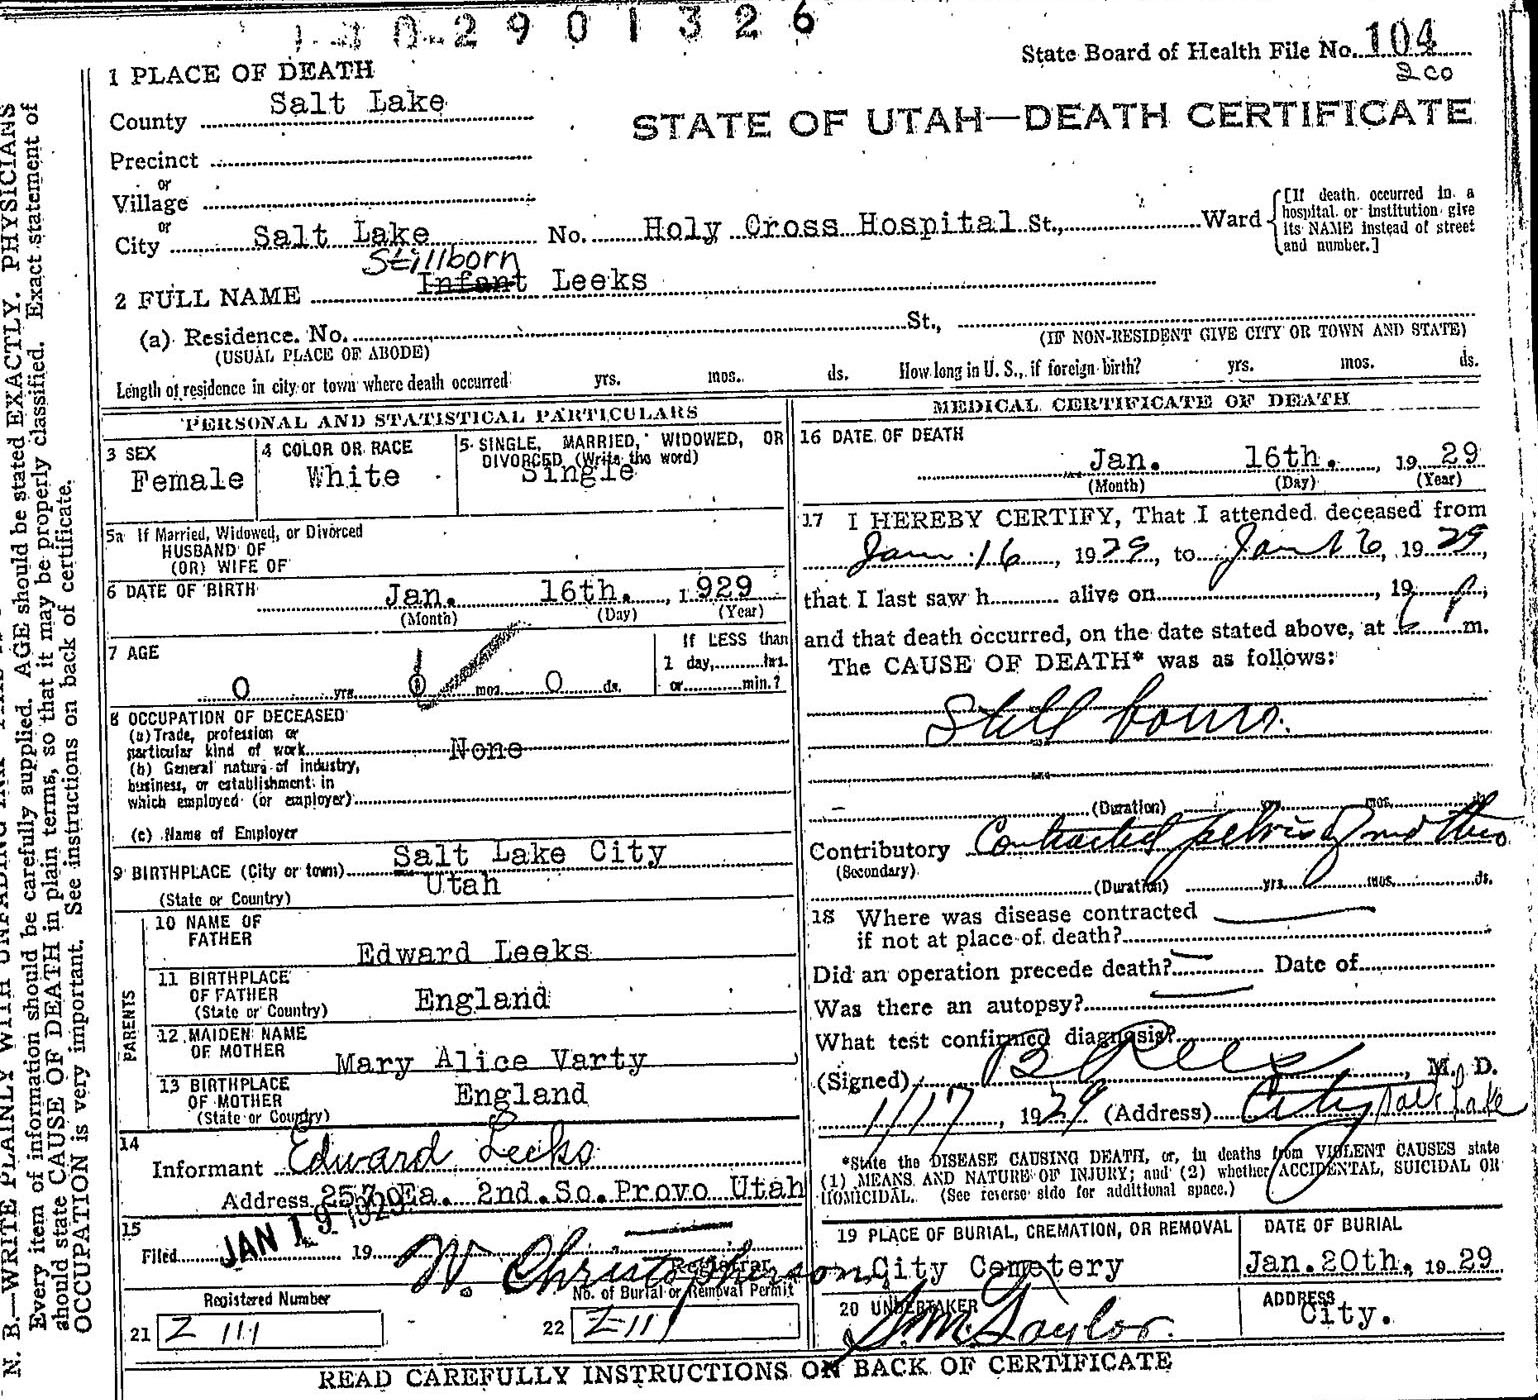 2901326
State Board of Health File No. 104
1 PLACE OF DEATH
County Salt Lake
STATE OF UTAH—DEATH CERTIFICATE
Precinct
or
Village
or
City Salt Lake No. Holy Cross Hospital St., Ward
[If death occurred in a
hospital or institution give
its NAME instead of street
and number.]
Stillborn
2 FULL NAME Infant Leeks
(a) Residence. No. St.,
(USUAL PLACE OF ABODE) (IF NON-RESIDENT GIVE CITY OR TOWN AND STATE)
Length of residence in city or town where death occurred yrs. mos. ds. How long in U. S., if foreign birth? yrs. mos. ds.
PERSONAL AND STATISTICAL PARTICULARS
3 SEX
Female
4 COLOR OR RACE
White
5 SINGLE, MARRIED, WIDOWED, OR
DIVORCED (Write the word)
Single
5a If Married, Widowed, or Divorced
HUSBAND OF
(OR) WIFE OF
6 DATE OF BIRTH Jan. 16th. , 1929
(Month) (Day) (Year)
7 AGE
0 yrs. 0 mos. 0 ds.
If LESS than
1 day, hrs.
or min.?
8 OCCUPATION OF DECEASED
(a) Trade, profession or
particular kind of work None
(b) General nature of industry,
business, or establishment in
which employed (or employer)
(c) Name of Employer
9 BIRTHPLACE (City or town) Salt Lake City
(State or Country) Utah
PARENTS
10 NAME OF
FATHER
Edward Leeks
11 BIRTHPLACE
OF FATHER
(State or Country)
England
12 MAIDEN NAME
OF MOTHER
Mary Alice Varty
13 BIRTHPLACE
OF MOTHER
(State or Country)
England
14
Informant Edward Leeks
Address 257 Ea. 2nd. So. Provo Utah
15
Filed JAN 19 1929 19
W. Christopherson
Registrar
Registered Number
21 Z 111
No. of Burial or Removal Permit
22 Z-111
MEDICAL CERTIFICATE OF DEATH
16 DATE OF DEATH
Jan. 16th. , 1929
(Month) (Day) (Year)
17 I HEREBY CERTIFY, That I attended deceased from
Jan 16, 1929, to Jan 16, 1929,
that I last saw h alive on , 19 ;
and that death occurred, on the date stated above, at 6 P m.
The CAUSE OF DEATH* was as follows:
Still born.
(Duration) yrs. mos. ds.
Contributory Contracted pelvis of mother
(Secondary)
(Duration) yrs. mos. ds.
18 Where was disease contracted
if not at place of death?
Did an operation precede death? Date of
Was there an autopsy?
What test confirmed diagnosis?
(Signed) B Rees, M. D.
1/17, 1929 (Address) City Salt Lake
*State the DISEASE CAUSING DEATH, or, in deaths from VIOLENT CAUSES state
(1) MEANS AND NATURE OF INJURY; and (2) whether ACCIDENTAL, SUICIDAL OR
HOMICIDAL. (See reverse side for additional space.)
19 PLACE OF BURIAL, CREMATION, OR REMOVAL
City Cemetery
DATE OF BURIAL
Jan. 20th. 1929
20 UNDERTAKER
Taylor.
ADDRESS
City.
READ CAREFULLY INSTRUCTIONS ON BACK OF CERTIFICATE
Every item of information should be carefully supplied. AGE should be stated EXACTLY. PHYSICIANS
should state CAUSE OF DEATH in plain terms, so that it may be properly classified. Exact statement of
OCCUPATION is very important. See instructions on back of certificate.
N. B.—WRITE PLAINLY WITH UNFADING INK